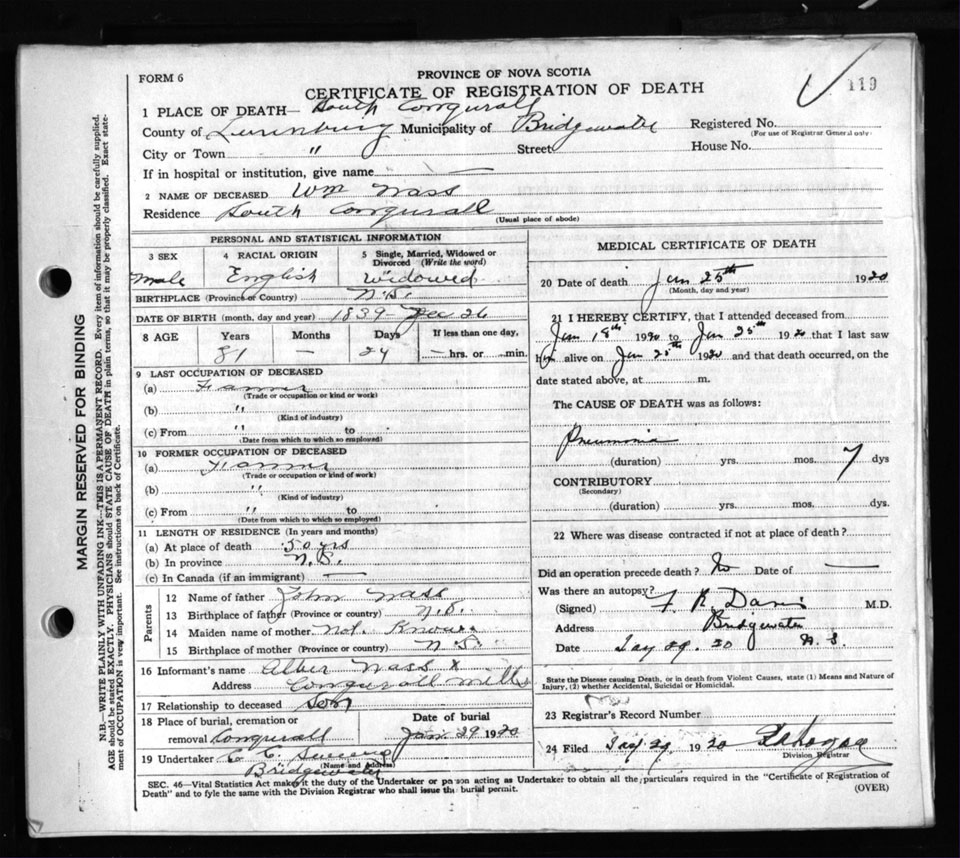 FORM 6
PROVINCE OF NOVA SCOTIA
CERTIFICATE OF REGISTRATION OF DEATH
119
1 PLACE OF DEATH— South Conquerall
County of Lunenburg Municipality of Bridgewater Registered No.
(For use of Registrar General only)
City or Town " Street House No.
If in hospital or institution, give name —
2 NAME OF DECEASED Wm Nass
Residence South Conquerall
(Usual place of abode)
PERSONAL AND STATISTICAL INFORMATION
3 SEX 4 RACIAL ORIGIN 5 Single, Married, Widowed or Divorced (Write the word)
Male English Widowed
BIRTHPLACE (Province or Country) N.S.
DATE OF BIRTH (month, day and year) 1839 Dec 26
8 AGE Years Months Days If less than one day,
81 — 29 — hrs. or min.
9 LAST OCCUPATION OF DECEASED
(a) Farmer
(Trade or occupation or kind or work)
(b) "
(Kind of industry)
(c) From " to
(Date from which to which so employed)
10 FORMER OCCUPATION OF DECEASED
(a) Farmer
(Trade or occupation or kind of work)
(b) "
(Kind of industry)
(c) From " to
(Date from which to which so employed)
11 LENGTH OF RESIDENCE (In years and months)
(a) At place of death 50 yrs
(b) In province N.S.
(c) In Canada (if an immigrant) —
Parents
12 Name of father John Nass
13 Birthplace of father (Province or country) N.S.
14 Maiden name of mother Not Known
15 Birthplace of mother (Province or country) N.S.
16 Informant's name Alber Nass x
Address Conquerall Mills
17 Relationship to deceased Son
18 Place of burial, cremation or removal Conquerall
Date of burial
Jan. 29 1920
19 Undertaker
(Name and Address)
Bridgewater
MEDICAL CERTIFICATE OF DEATH
20 Date of death Jan 25th 1920
(Month, day and year)
21 I HEREBY CERTIFY, that I attended deceased from
Jan 18th 1920 to Jan 25th 1920 that I last saw
him alive on Jan 25th 1920 and that death occurred, on the
date stated above, at m.
The CAUSE OF DEATH was as follows:
Pneumonia
(duration) yrs. mos. 7 dys
CONTRIBUTORY
(Secondary)
(duration) yrs. mos. dys.
22 Where was disease contracted if not at place of death?
Did an operation precede death? No Date of —
Was there an autopsy?
(Signed) F. R. Davis M.D.
Address Bridgewater
Date Jay 29. 20 N.S.
State the Disease causing Death, or in death from Violent Causes, state (1) Means and Nature of
Injury, (2) whether Accidental, Suicidal or Homicidal.
23 Registrar's Record Number
24 Filed Jay 29 1920
Division Registrar
SEC. 46—Vital Statistics Act makes it the duty of the Undertaker or person acting as Undertaker to obtain all the particulars required in the "Certificate of Registration of
Death" and to fyle the same with the Division Registrar who shall issue the burial permit. (OVER)
MARGIN RESERVED FOR BINDING
N.B.—WRITE PLAINLY WITH UNFADING INK—THIS IS A PERMANENT RECORD. Every item of information should be carefully supplied.
AGE should be stated EXACTLY. PHYSICIANS should STATE CAUSE OF DEATH in plain terms, so that it may be properly classified. Exact state-
ment of OCCUPATION is very important. See instructions on back of Certificate.